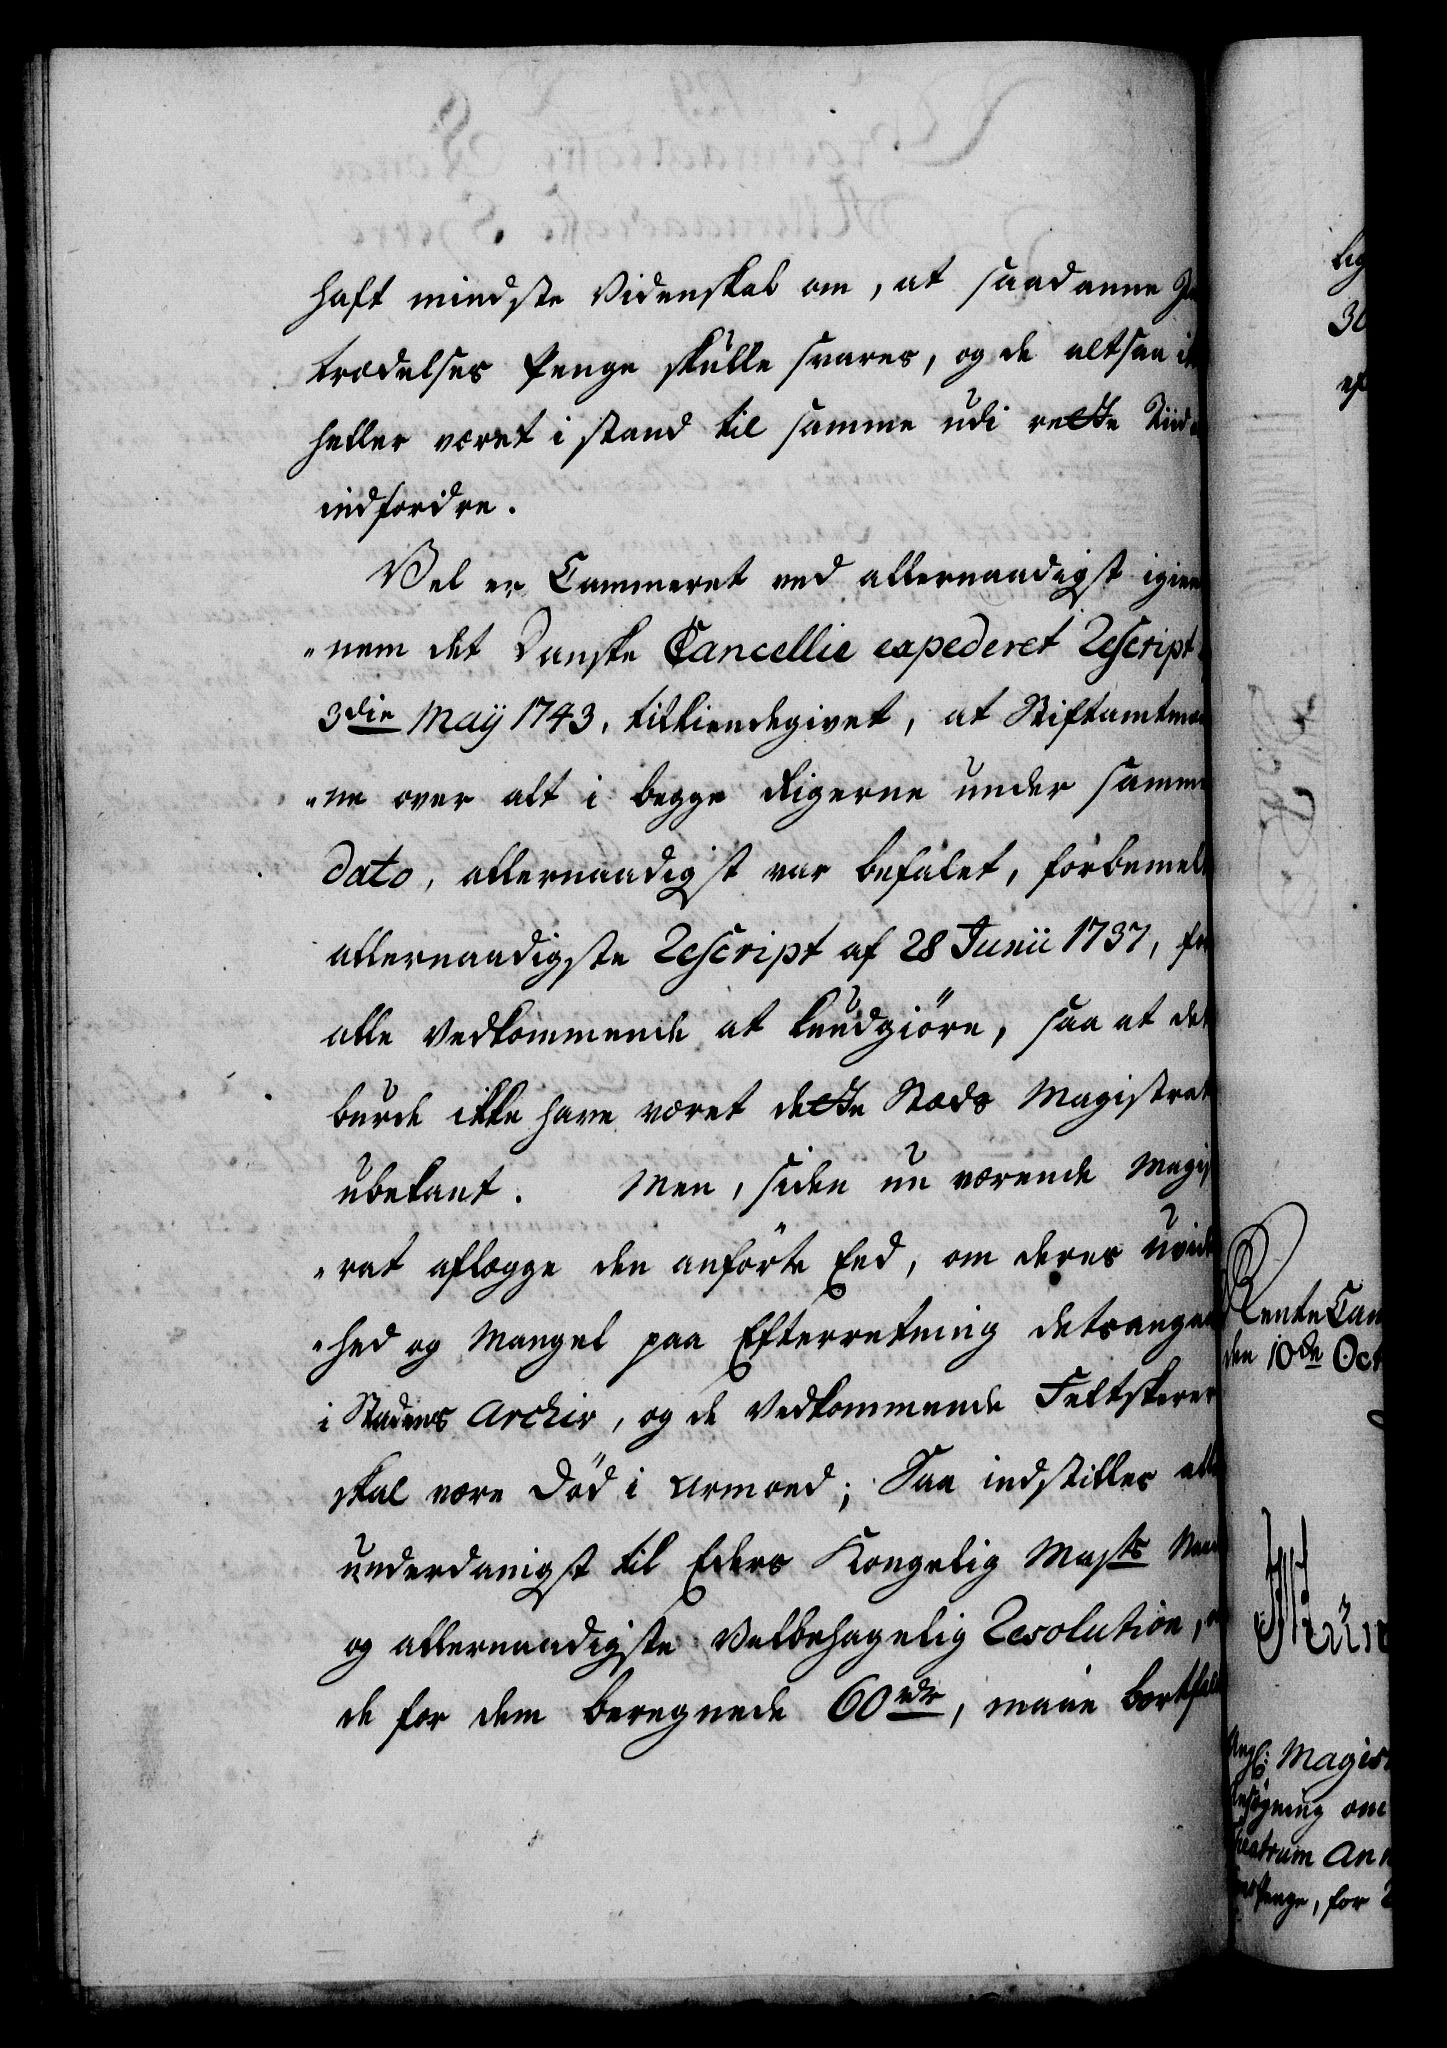 haft mindste Videnskab om, at saadanne
trædelses Penge skulle svares, og de altsaa
heller været i stand til samme udi rette Tiid
indfordre.
Vel er Cammeret ved allernaadigst igien
"nem det Danske Cancellie expederet Rescript
3die Maij 1743, tilkiendegivet, at Stiftamtmæn
"ne over alt i begge Rigerne under samme
dato, allernaadigst var befalet, forbemelte
allernaadigste Rescript af 28 Junii 1737, for
alle Vedkommende at kundgiøre, saa at det
burde ikke have været dette Stæds Magistrat
ubekant. Men, siden nu værende Magist
"rat aflægge den anførte Eed, om deres uvid
"hed og Mangel paa Efterretning detsangaa
i Stadens Archiv, og de Vedkommende Feltskerer
skal være Død i Armoed; Saa indstilles aller
underdanigst til Eders Kongelig Maysts Naad
og allernaadigste Velbehagelig Resolution,
de for dem beregnede 60 rdr, maae bortfalde
lig
30
RenteCam
den 10de Oct
Magist
Ansøgning om
Theatrum An
Penge, for